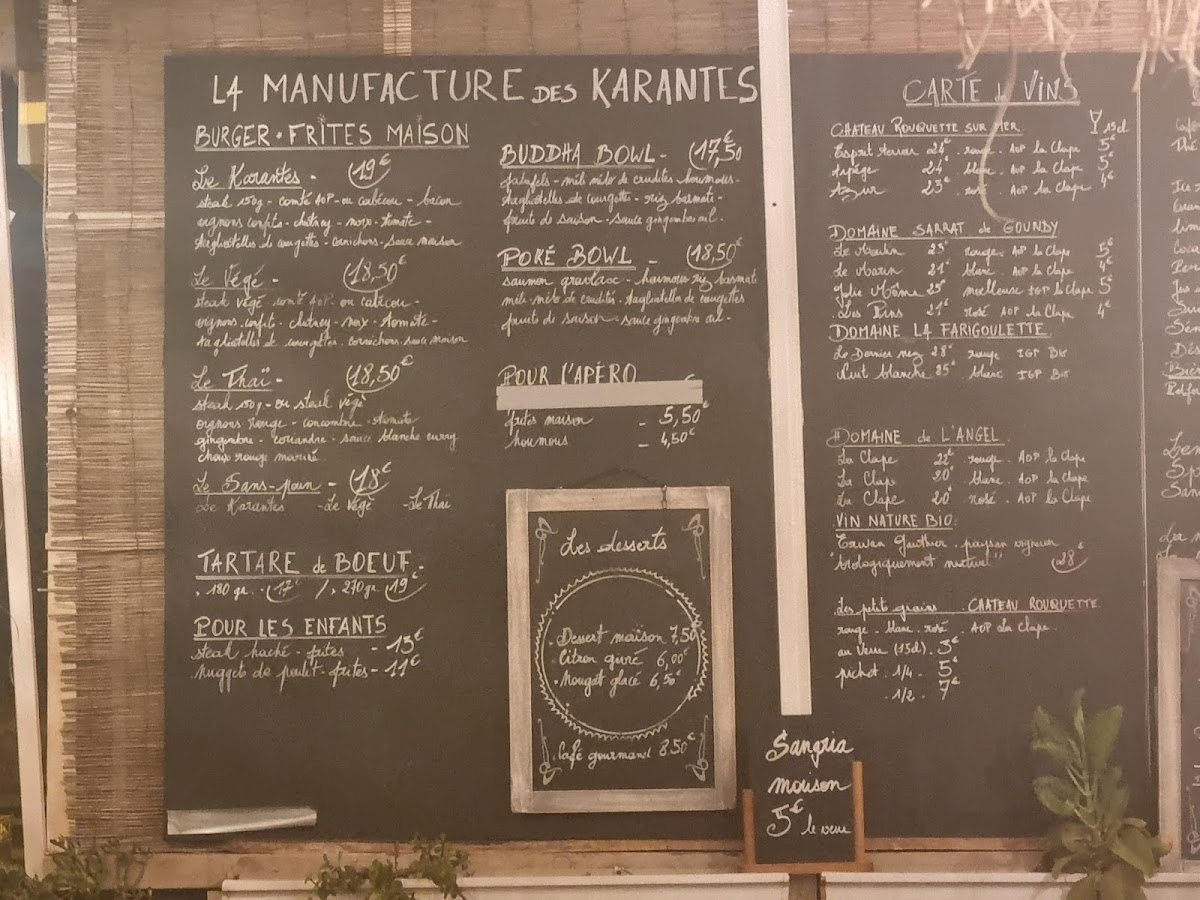 LA MANUFACTURE DES KARANTES
BURGER • FRITES MAISON
Le Karantes - 19€
steak 150g - comté AOP ou cabécou - bacon
oignons confits - chutney - noix - tomate -
tagliatelles de courgettes - cornichons - sauce maison
Le Végé - 18,50€
steak végé comté AOP ou cabécou -
oignons confits - chutney - noix - tomate -
tagliatelles de courgettes - cornichons - sauce maison
Le Thaï - 18,50€
steak 150g - ou steak végé
oignons rouge - concombre - tomate
gingembre - coriandre - sauce blanche curry
choux rouge mariné
Le Sans-pain - 18€
Le Karantes - Le Végé - Le Thaï
TARTARE de BOEUF -
• 180 gr - 17€ / • 270 gr 19€
POUR LES ENFANTS
steak haché - frites - 13€
nuggets de poulet - frites - 11€
BUDDHA BOWL - 17,50€
falafels - méli mélo de crudités - houmous -
tagliatelles de courgettes - riz basmati -
fruits de saison - sauce gingembre
POKÉ BOWL - 18,50€
saumon gravlax - houmous riz basmati
méli mélo de crudités - tagliatelles de courgettes
fruits de saison - sauce gingembre
POUR L'APÉRO
frites maison - 5,50€
houmous - 4,50€
Les desserts
• Dessert maison 7,50
• Citron givré 6,00€
• Nougat glacé 6,50€
• Café gourmand 8.50€
Sangria
maison
5€ le verre
CARTE de VINS
CHATEAU ROUQUETTE SUR MER 15cl
Esprit terroir 26€ rouge - AOP la Clape 5€
Arpège 24€ blanc - AOP la Clape 5€
Azur 23€ rosé - AOP la Clape 4€
DOMAINE SARRAT de GOUNDY
Le Moulin 25€ rouge - AOP la Clape 5€
Le Marin 21€ blanc - AOP la Clape 4€
Jolie Môme 25€ moelleuse IGP la Clape 5
Les Pins 21€ rosé AOP la Clape 4€
DOMAINE LA FARIGOULETTE
Le Dernier nez 28€ rouge IGP Bio
Nuit blanche 25€ blanc IGP Bio
DOMAINE de L'ANGEL
La Clape 22€ rouge - AOP la Clape
La Clape 20€ blanc - AOP la Clape
La Clape 20€ rosé - AOP la Clape
VIN NATURE BIO
Erwan Gauthier - paysan vigneron
"biologiquement 28€
Les petits grains - CHATEAU ROUQUETTE
rouge - blanc - rosé - AOP La Clape
au verre (15cl) - 3€
pichet - 1/4 - 5€
- 1/2 - 7€